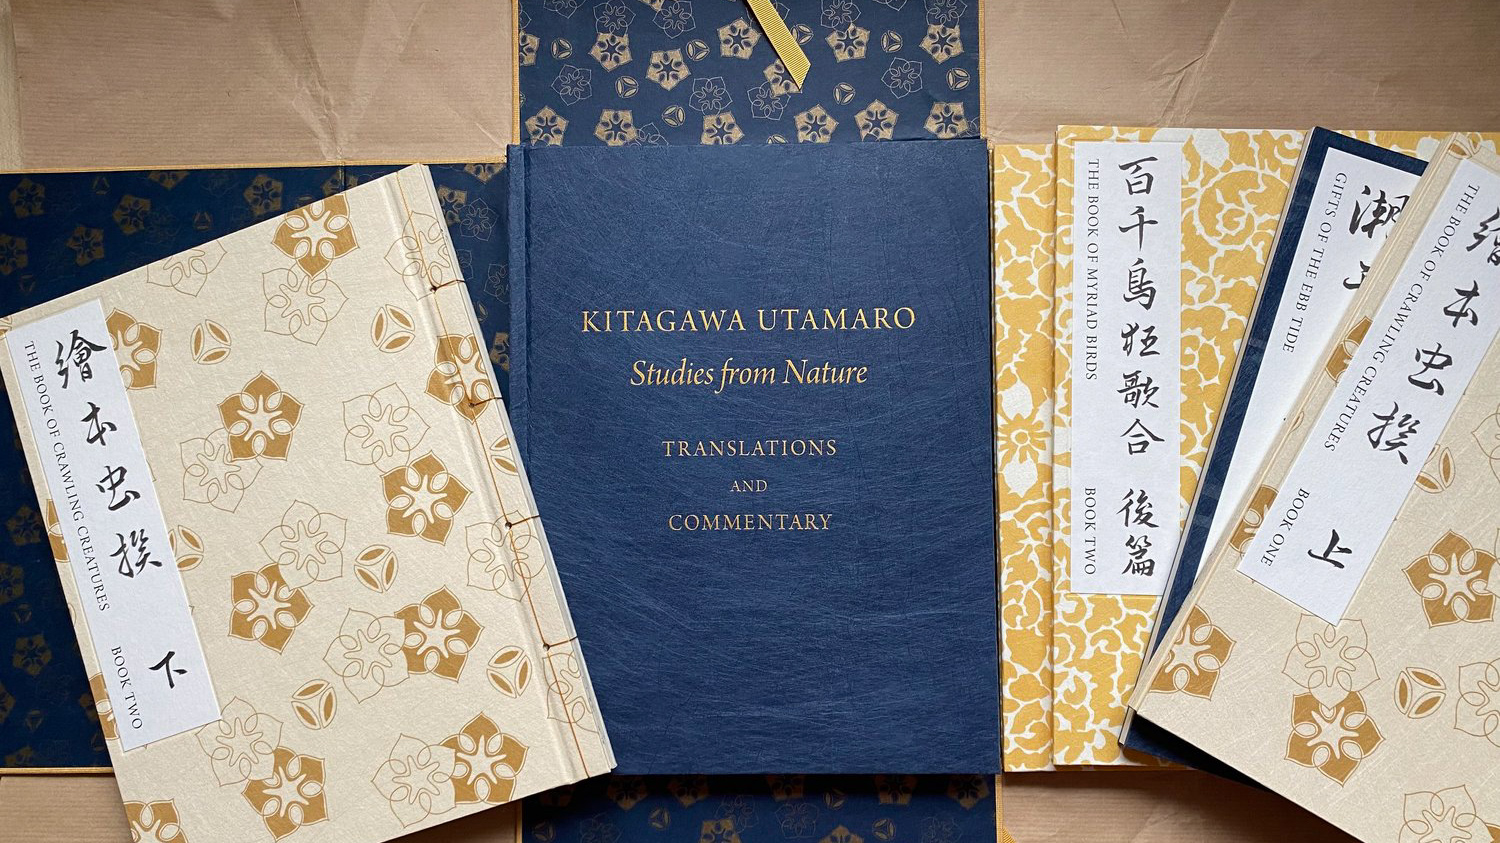 繪本虫撰 下
THE BOOK OF CRAWLING CREATURES BOOK TWO
KITAGAWA UTAMARO
Studies from Nature
TRANSLATIONS
AND
COMMENTARY
百千鳥狂歌合 後篇
THE BOOK OF MYRIAD BIRDS BOOK TWO
潮
GIFTS OF THE EBB TIDE
繪本虫撰 上
THE BOOK OF CRAWLING CREATURES BOOK ONE